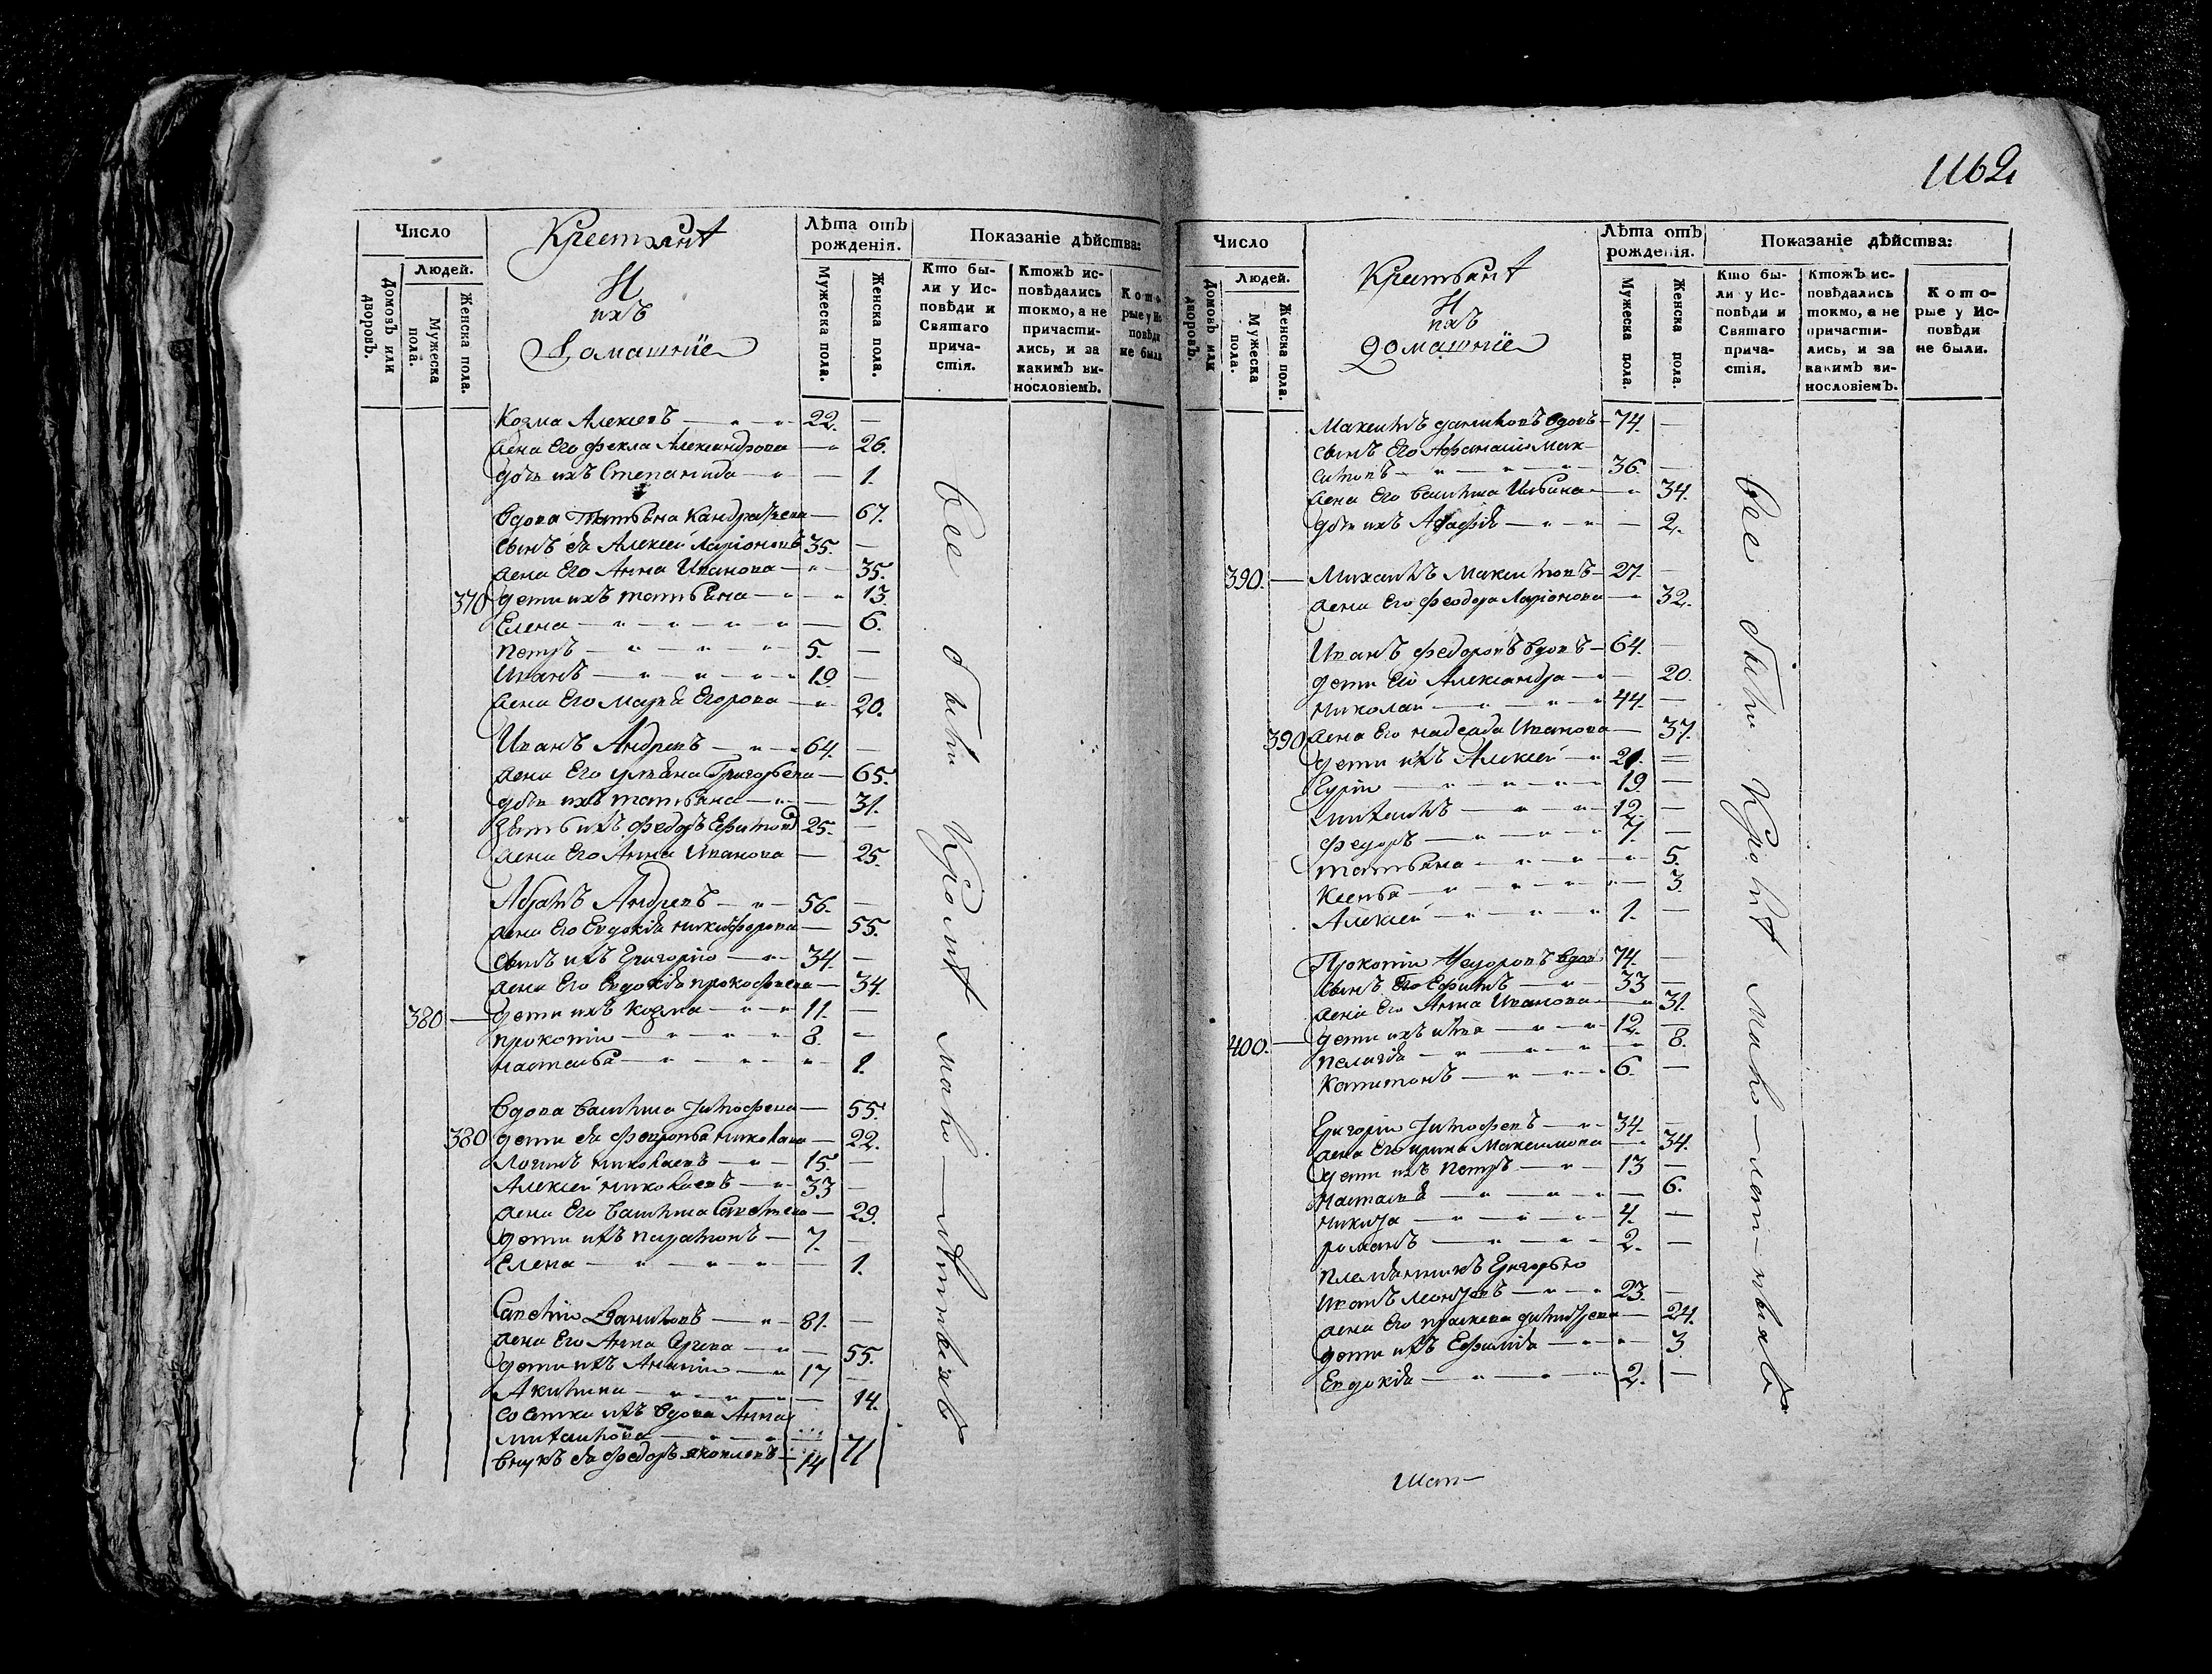 1162
Число
Людей.
Домовъ или дворовъ.
Мужеска пола.
Женска пола.
Крестьянѣ
И
ихъ
Домашнїе
Лѣта отъ рожденїя.
Мужеска пола.
Женска пола.
Показанїе дѣйства:
Кто были у Исповѣди и Святаго причастїя.
Ктожъ исповѣдались токмо, а не причастились, и за какимъ винословїемъ.
Которые у Исповѣди не были.
Козма Алексѣевъ 22. —
жена Его Фекла Александрова — 26.
дочь ихъ Степанида — 1.
вдова Татьяна Кандратьева — 67.
сынъ ея Алексей Ларïоновъ 35. —
жена Его Анна Иванова — 35.
370 дети ихъ татьяна — 13.
Елена — 6.
петръ 5. —
Иванъ 19 —
жена Его марья Егорова — 20.
Иванъ Андреевъ 64. —
жена Его ульяна Григорьева — 65.
дочь ихъ татьяна — 31.
зять ихъ федоръ Ефимовъ 25. —
жена Его Анна Иванова — 25.
Абрамъ Андреевъ 56. —
жена Его Евдокѣя никифорова — 55.
сынъ ихъ Григорïю 34. —
жена Его Евдокѣя прокофиева — 34.
380 — дети ихъ козма 11. —
прокопïи 8. —
настасья — 1.
вдова василиса тимофеева — 55.
380 дети ея февронья николаева — 22.
логинъ николаевъ 15. —
Алексеи николаевъ 33 —
жена Его василиса Савельева — 29.
дети ихъ парамонъ 7. —
Елена — 1.
Савелïи Даниловъ 81. —
жена Его Анна — 55.
дети ихъ Ананïи 17 —
Акилина — 14.
вдова Анна
михаилова — 71
внукъ ея федоръ яковлевъ 14
все были кромѣ мало-лѣтныхъ
Число
Людей.
Домовъ или дворовъ.
Мужеска пола.
Женска пола.
Крестьянѣ
И
ихъ
домашнїе
Лѣта отъ рожденїя.
Мужеска пола.
Женска пола.
Показанїе дѣйства:
Кто были у Исповѣди и Святаго причастїя.
Ктожъ исповѣдались токмо, а не причастились, и за какимъ винословїемъ.
Которые у Исповѣди не были.
Максимъ даниловъ вдовъ 74. —
сынъ Его Афанасïи Мак
симовъ 36. —
жена Его василиса Ильина — 34.
дочь ихъ Агафья — 2.
390. — Михаилъ Максимовъ 27. —
жена Его феодора Ларïонова — 32.
Иванъ федоровъ вдовъ 64. —
дети Его Александра — 20.
николаи 44. —
390 жена Его надежда Иванова — 37.
дети ихъ Алексеи 21. —
Гурïи 19. —
михаилъ 12. —
федоръ 7. —
татьяна — 5.
Ксенья — 3
Алексеи 1. —
Прокопïи федоровъ вдовъ 74. —
сынъ Его Ефимъ 33 —
жена Его Анна Иванова — 31.
400. — дети ихъ илья 12. —
пелагѣя — 8.
капитонъ 6. —
Григорïи тимофеевъ 34. —
жена Его ирина Максимова — 34.
дети ихъ петръ 13 —
настасья — 6.
никита 4. —
романъ 2. —
племянникъ Григорью
Иванъ 23. —
жена Его праскева дмитрева — 24.
дети ихъ Ефимѣя — 3
Евдокѣя 2. —
все были кромѣ мало-лѣт-ныхъ